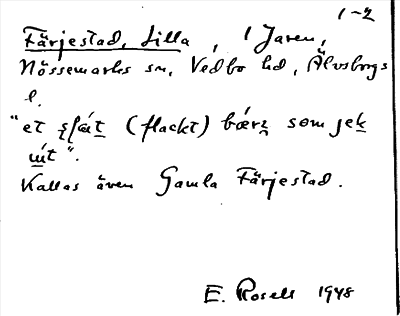 1-2
Färjestad, Lilla, i Jaren,
Nössemarks sn, Vedbo hd, Älvsborgs
l.
"et (flackt) bærj som jek
ut".
Kallas även Gamla Färjestad.
E. Rosell 1948